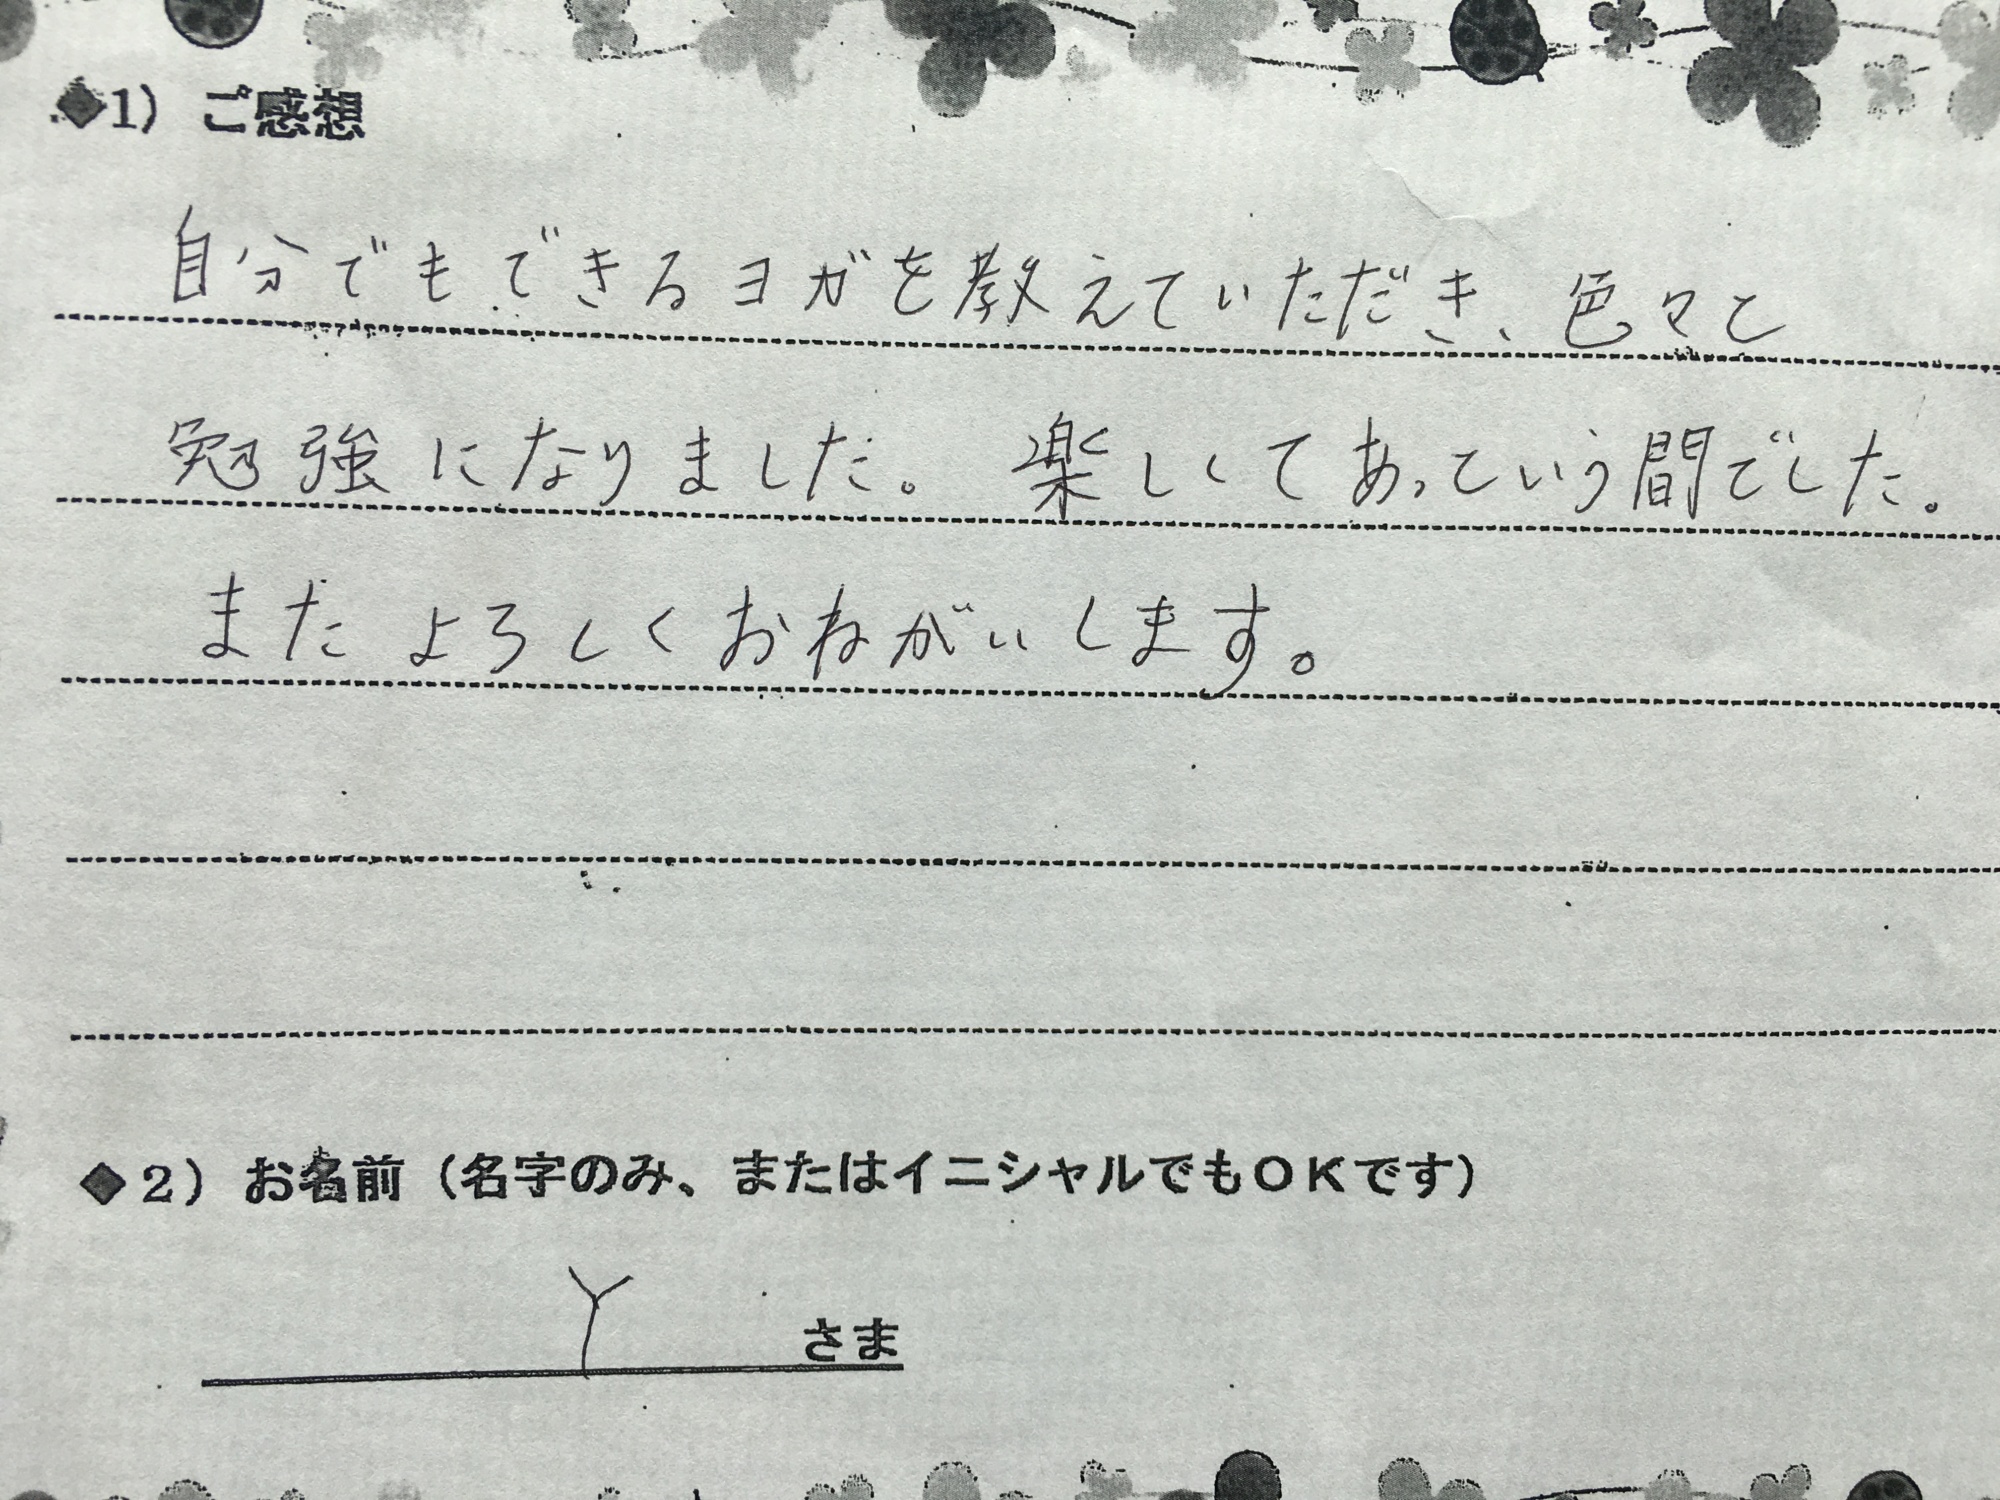 ◆1) ご感想
自分でもできるヨガを教えていただき、色々と
勉強になりました。楽しくてあっという間でした。
またよろしくおねがいします。
◆2) お名前(名字のみ、またはイニシャルでもOKです)
Y さま